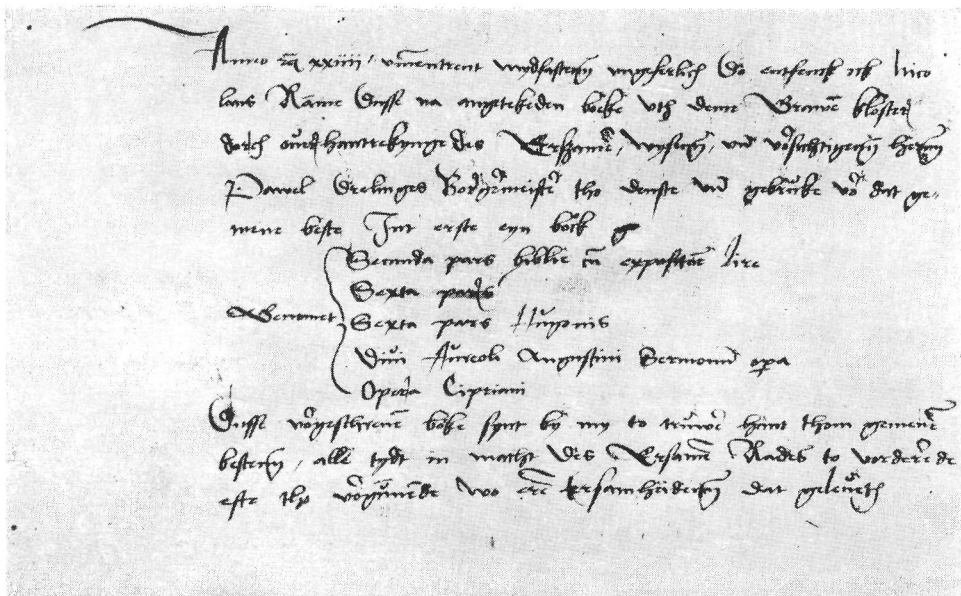 Anno xxiiii, ummentrent mydfasten ungeferlich Do entfenck ick Nico
laus Ramme Dusse na angetekeden boke uth deme Grawen kloster
dorch overhantrekynge des Ersamen, wysen, und vorsichtigen heren
Pawel Drelinges Borgermeister tho denste und gebruke vor dat ge-
mene beste Int erste eyn bock
Secunda pars biblie cum expositione Lire
Sexta pars
Genomet Sexta pars Hugonis
Divi Aureoli Augustini Sermonum opera
Opera Cipriani
Dusse vorgeschreven boke synt by my to truwer hant thom gemenen
besten, alle tydt in macht des Ersamen Rades to vorderende
efte tho vorgunnende wo ere Ersamheiden dat geleveth